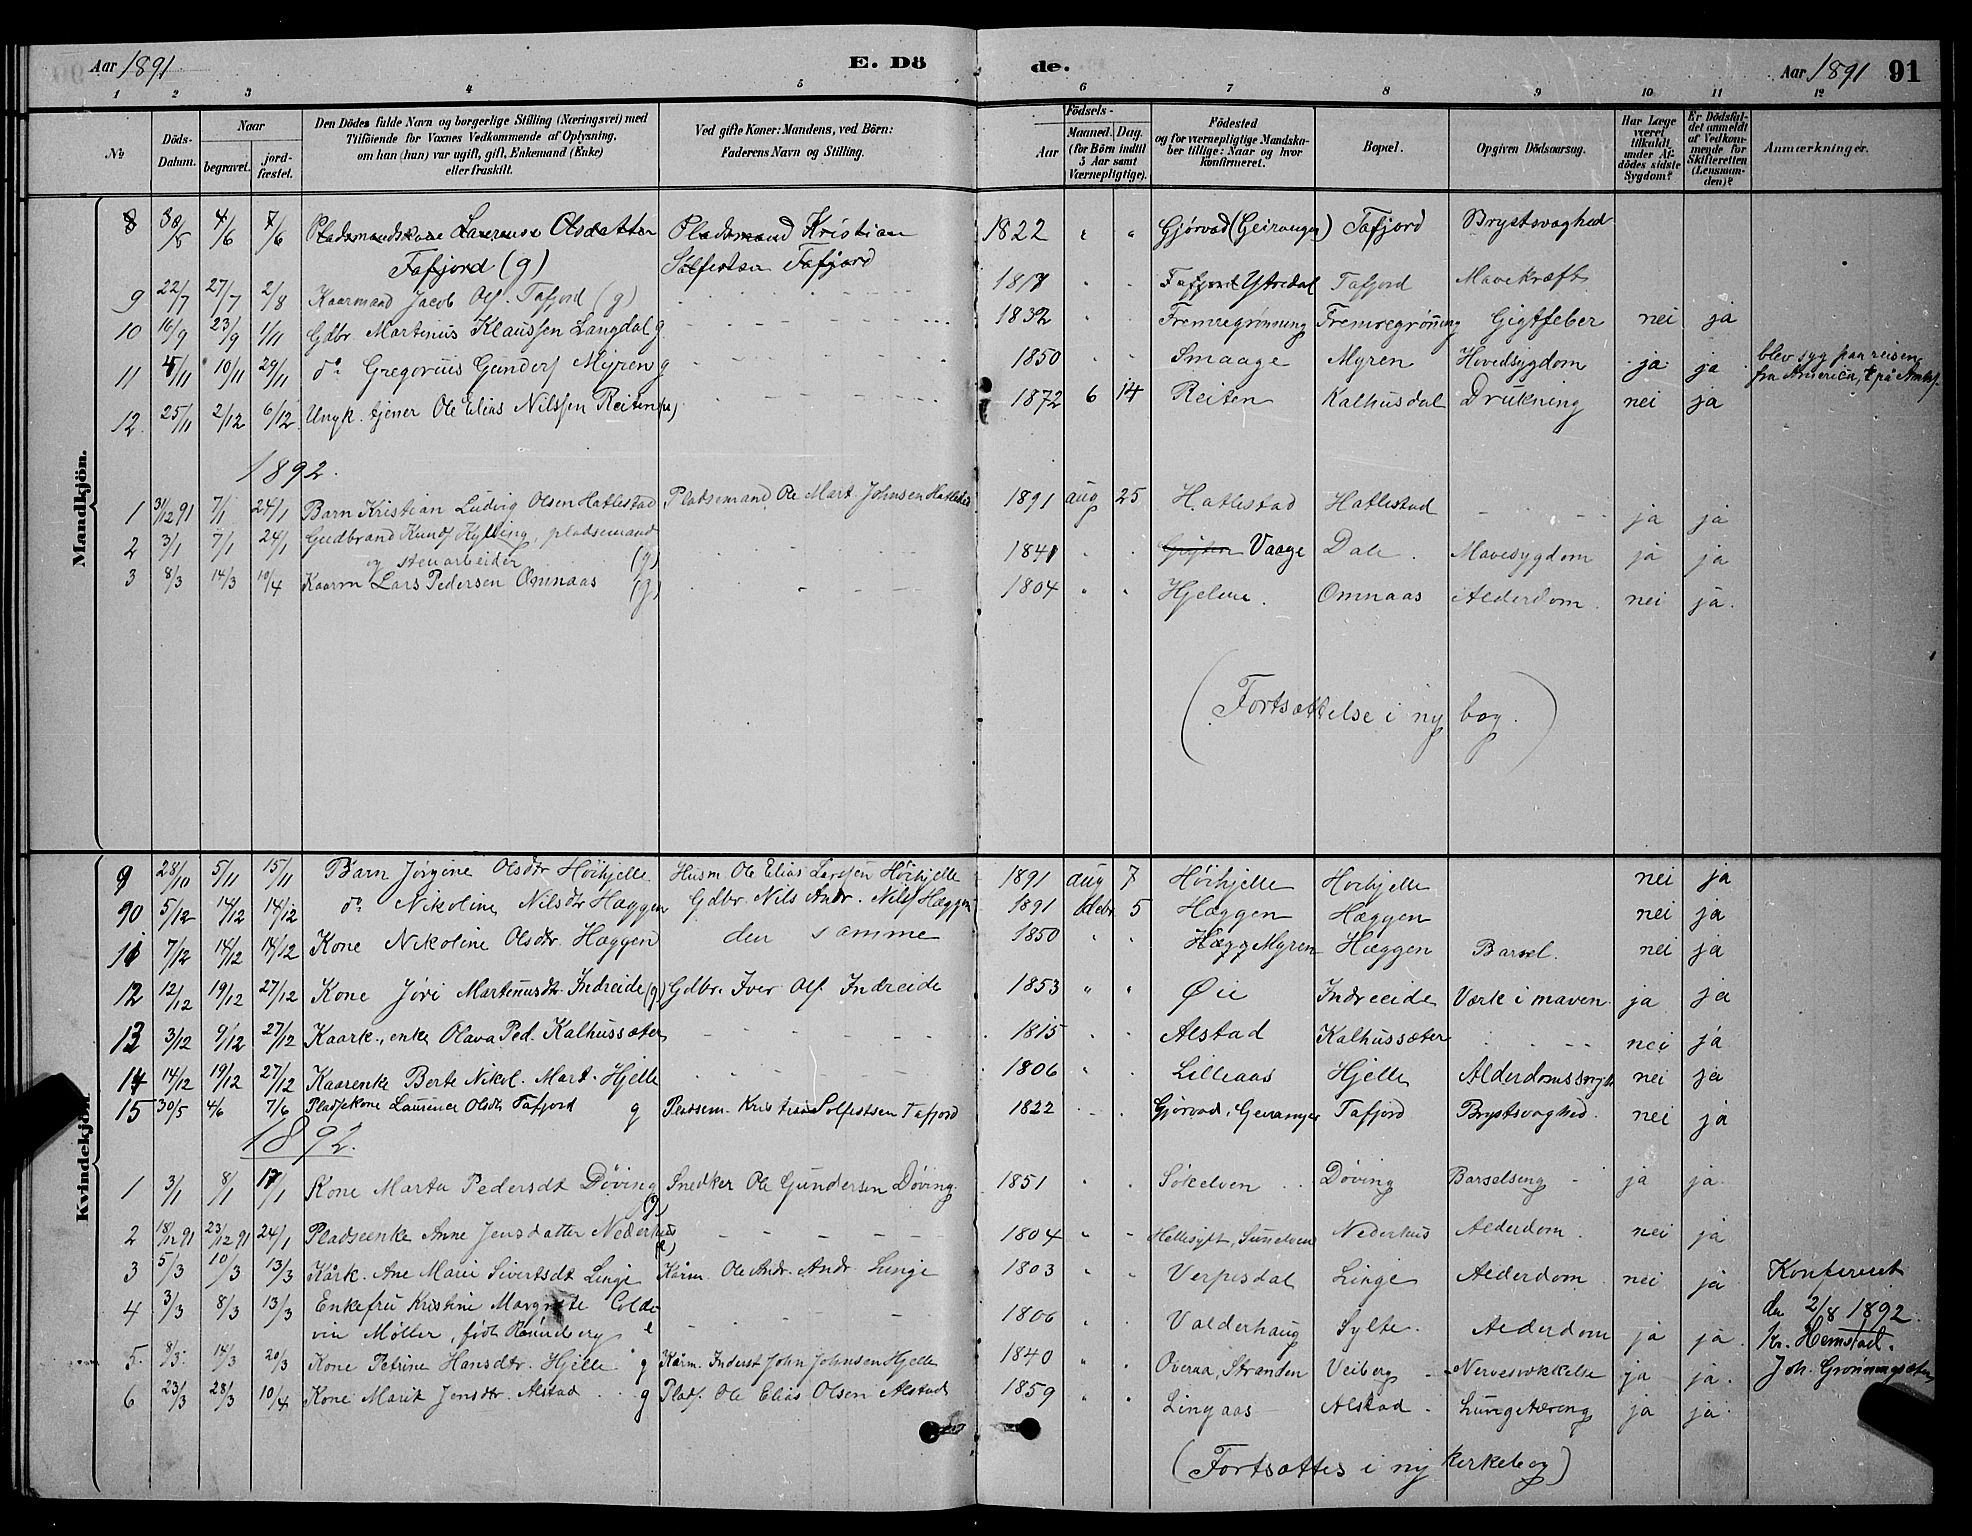 Aar 1891
E. Dö
de.
Aar 1891 91
1 2 3 4 5 6 7 8 9 10 11 12
No
Döds-Datum.
Naar
begravet.
jord-fæstet.
Den Dödes fulde Navn og borgerlige Stilling (Næringsvei) med
Tilföiende for Voxnes Vedkommende af Oplysning,
om han (hun) var ugift, gift, Enkemand (Enke)
eller fraskilt.
Ved gifte Koner: Mandens, ved Börn:
Faderens Navn og Stilling.
Födsels-
Aar
Maaned. Dag.
(for Börn indtil
5 Aar samt
Værnepligtige).
Födested
og for værnepligtige Mandska-
ber tillige: Naar og hvor
konfirmeret.
Bopæl.
Opgiven Dödsaarsag.
Har Læge
været
tilkaldt
under Af-
dödes sidste
Sygdom?
Er Dödsfal-
det anmeldt
af Vedkom-
mende for
Skifteretten
(Lensman-
den)?
Anmærkninger.
Mandkjön.
8 30/5 4/6 7/6 Pladsmandskone Laurense Olsdatter Pladsmand Kristian 1822 " " Gjørvad (Geiranger) Tafjord Brystsvaghed
Tafjord (g) Sølfestsen Tafjord
9 22/7 27/7 2/8 Kaarmand Jacob Ols. Tafjord (g) 1817 " " Tafjord Ytredal Tafjord Mavekræft
10 16/9 23/9 1/11 Gdbr Martinus Klaussen Langdal g 1832 " Fremregrønning Fremregrønning Gigtfeber nei ja
11 4/11 10/11 29/11 do Gregorius Gunders Myren g 1850 " " Smaage Myren Hovedsygdom ja ja blev syg paa reisen
fra America,
12. 25/11 2/12 6/12 Ungk. tjener Ole Elias Nilssen Reiten (u) 1872 6 14 Reiten Kalhusdal Drukning nei ja
1892.
1 31/12 91 7/1 24/1 Barn Kristian Ludvig Olsen Hatlestad Pladsemand Ole Mart. Johnsen Hatlestad 1891 aug 25 Hatlestad Hatlestad - - - ja ja
2 3/1 7/1 24/1 Gudbrand Knuds Kylling, pladsemand
og stenarbeider (g) 1841 " " Vaage Dale. Mavesygdom ja ja
3 8/3 14/3 10/4 Kaarm Lars Pedersen Omnaas (g) 1804 " " Hjelme. Omnaas Alderdom. nei ja.
(Fortsættelse i ny bog.)
Kvindekjön.
9 28/10 5/11 15/11 Barn Jørgine Olsdtr Höihjelle Husm Ole Elias Larssen Höihjelle 1891 aug 7 Höihjelle Hoihjelle nei ja
10 5/12 14/12 14/12 do Nikoline Nilsdtr Hæggen Gdbr. Nils Andr. Nilss Hæggen 1891 5 Hæggen Hæggen nei ja
11 7/12 14/12 14/12 Kone Nikoline Olsdtr. Hæggen den samme 1850 " " Myren Hæggen Barsel. nei ja
12 12/12 19/12 27/12 Kone Jøri Martinusdtr Indreide (g) Gdbr. Iver Ols. Indreide 1853 " " Øie Indreeide Værk i maven. ja ja
13 3/12 9/12 27/12 Kaark., enke Olava Ped. Kalhussæter 1815 " " Alstad Kalhussæter nei ja
14 14/12 19/12 27/12 Kaarenke Berte Nikol. Mart. Hjelle 1806 " " Lilleaas Hjelle nei ja
15 30/5 4/6 7/6 Pladsekone Laurense Olsdtr Tafjord g Pladsem. Kristian Solfestsen Tafjord 1822 Gjørvad, Geiranger Tafjord Brystsvaghed. nei ja
1892.
1 3/1 8/1 17/1 Kone Marta Pedersdt Döving (g) Snedker Ole Gundersen Döving. 1851 " " Sökelven Döving Barselseng ja ja.
2 18/12 91 23/12 91 24/1 Pladseenke Anne Jensdatter Nederhus (e) 1804 " " Hellesylt, Sunelven Nederhus Alderdom. nei ja
3 5/3 10/3 13/3 Kårk. Ane Marie Sivertsdt Linge Kårm. Ole Andr. Andr. Linge 1803 " Verpesdal Linge Alderdom nei ja
4 3/3 8/3 13/3 Enkefru Kristine Margrete Colde
vin Møller, født e 1806 " Valderhaug Sylte. Alderdom ja ja.
5. 8/3. 14/3 20/3 Kone Petrine Hansdtr. Hjelle g Kårm. Inderst John Johnsen Hjelle 1840 " " Overaa, Stranden Veiberg Nervesvækkelse ja ja.
6 23/3 28/3 10/4 Kone Marit Jensdtr. Alstad g Plads. Ole Elias Olsen Alstad 1859 " " Lingaas Alstad Lungetæring ja ja.
Konfereret
den 2/8 1892.
Kr. Hemstad.
Joh. Grønningsæter
(Fortsættes i ny kirkebog)